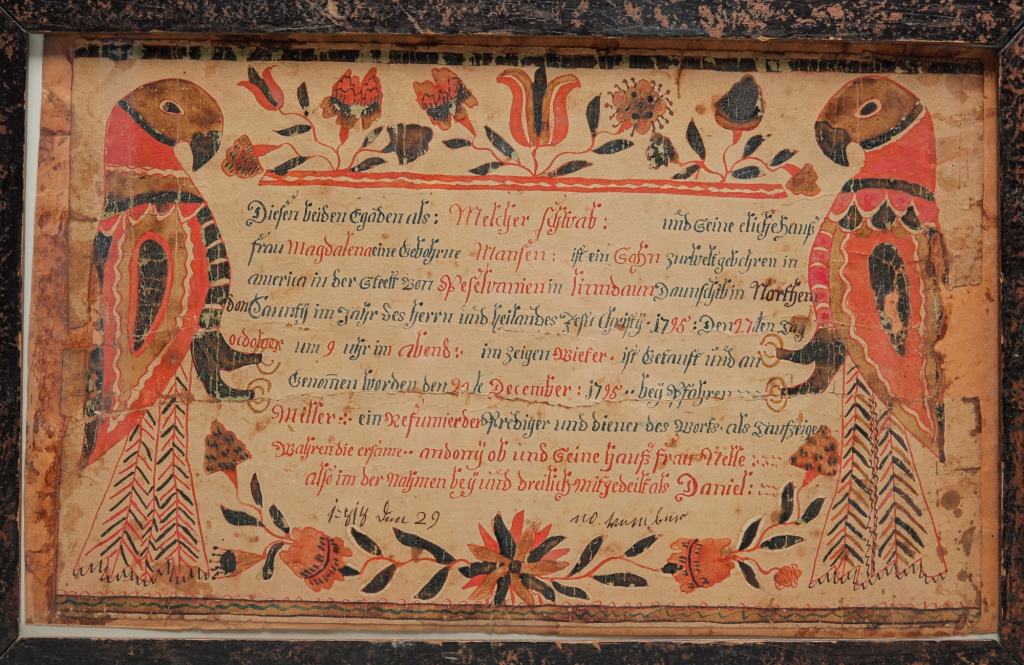 Diesen beiden Egaden als: Melcher schwab: und Seine elichehauß
frau Magdalena eine Gebohrne Mansen: ist ein Sohn zurweltgebohren in
america in der Stett von Peselvanien in Daunschib in Northem
don Caunty im Jahr des herrn und heilandes Jesu Christy. 1795: Den 27ten Tag
ocdober um 9 uhr im abend: im zeigen Wieter. ist Getauft und an
Genom̅en Worden den December: 1795 .. bey Pfahren
Miller.: ein Refumierder Prediger und diener des Worts als Taufzeigen
Wahren die ersame.. andony ob und Seine hauß frau Nelle
also im der Nahmen bey und dreilich Mitgedeilt als Daniel:
Den 29 no.wember